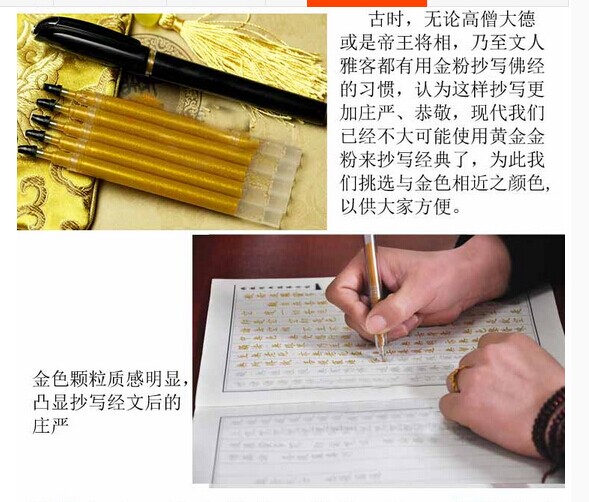 古时，无论高僧大德
或是帝王将相，乃至文人
雅客都有用金粉抄写佛经
的习惯，认为这样抄写更
加庄严、恭敬，现代我们
已经不大可能使用黄金金
粉来抄写经典了，为此我
们挑选与金色相近之颜色，
以供大家方便。
金色颗粒质感明显，
凸显抄写经文后的
庄严